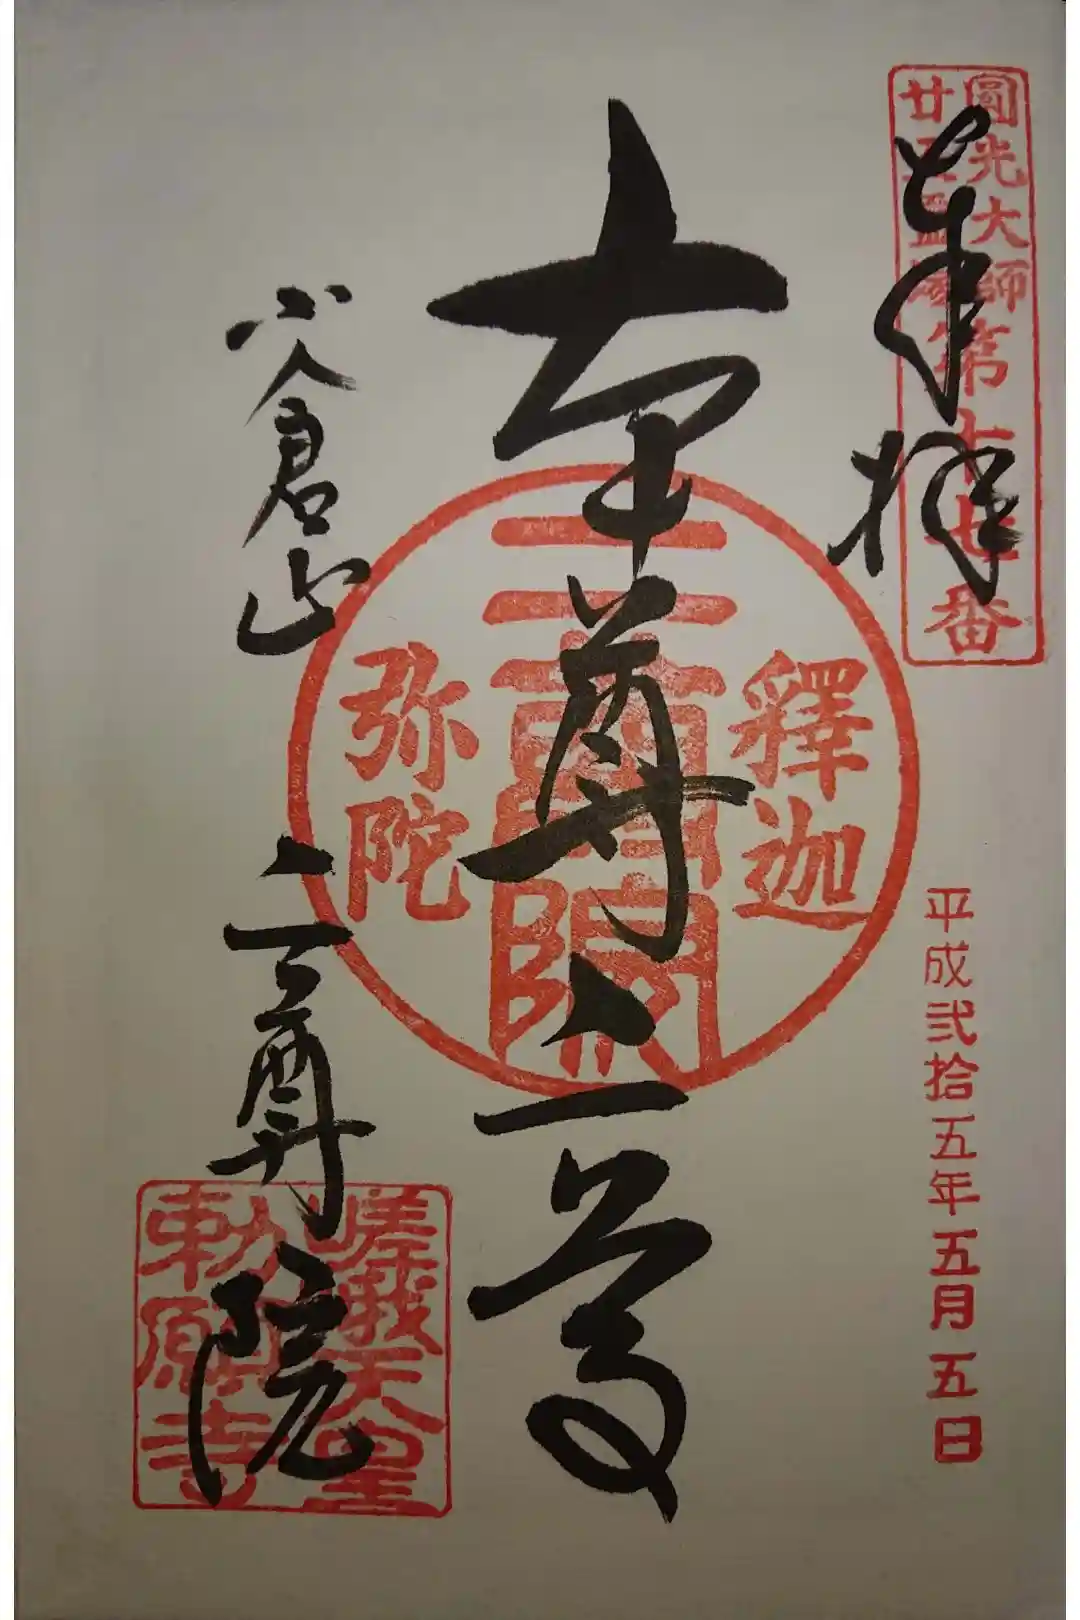 圓光大師
廿五霊場
第十七番
奉拝
平成弐拾五年五月五日
本尊二尊
釋迦
二尊院
弥陀
小倉山
二尊院
嵯峨天皇
勅願寺